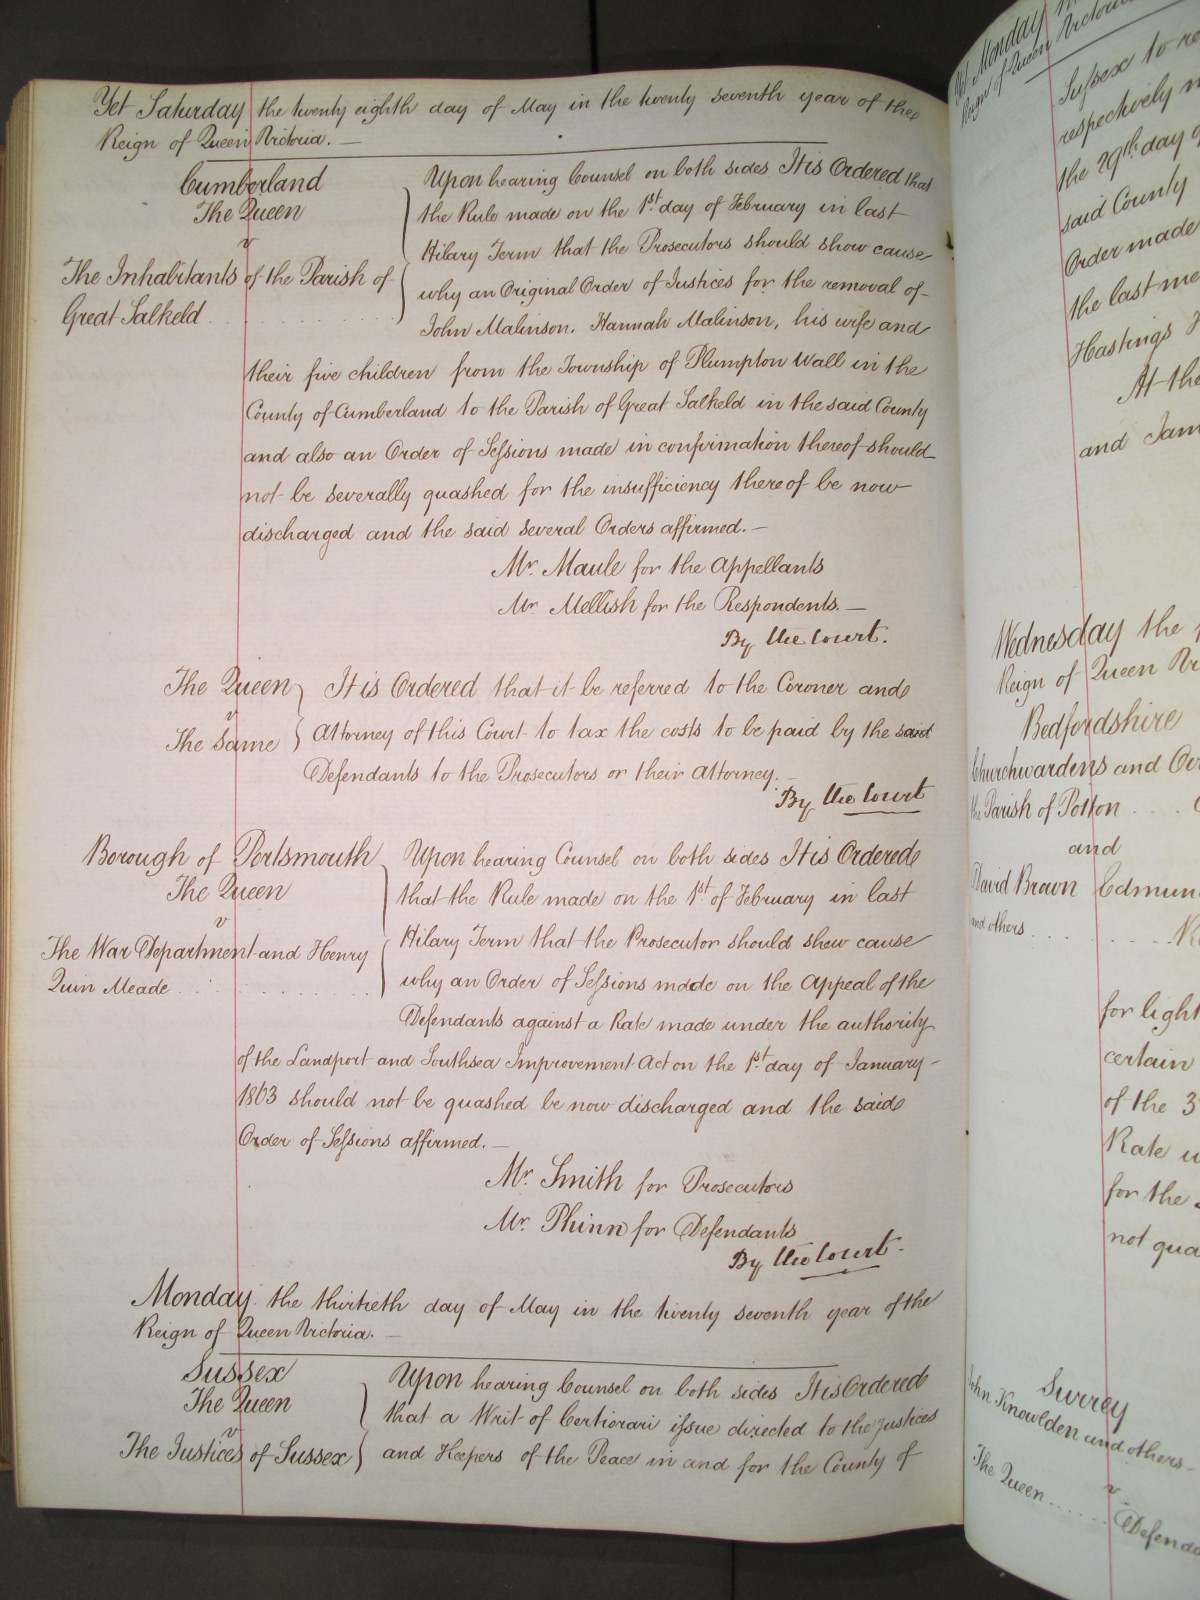 Yet Saturday the twenty eighth day of May in the twenty seventh year of the
Reign of Queen Victoria. —
Cumberland
The Queen
v
The Inhabitants of the Parish of
Great Salkeld
Upon hearing Counsel on both sides It is Ordered that
the Rule made on the 1st day of February in last
Hilary Term that the Prosecutors should show cause
why an Original Order of Justices for the removal of
John Malinson, Hannah Malinson, his wife and
their five children from the Township of Plumpton Wall in the
County of Cumberland to the Parish of Great Salkeld in the said County
and also an Order of Sessions made in confirmation thereof should
not be severally quashed for the insufficiency thereof be now
discharged and the said several Orders affirmed. —
Mr. Maule for the Appellants
Mr. Mellish for the Respondents. —
By the Court.
The Queen
v
The Same
It is Ordered that it be referred to the Coroner and
Attorney of this Court to tax the costs to be paid by the said
Defendants to the Prosecutors or their Attorney. —
By the Court
Borough of Portsmouth
The Queen
v
The War Department and Henry
Quin Meade
Upon hearing Counsel on both sides It is Ordered
that the Rule made on the 1st of February in last
Hilary Term that the Prosecutor should shew cause
why an Order of Sessions made on the Appeal of the
Defendants against a Rate made under the authority
of the Landport and Southsea Improvement Act on the 1st day of January
1863 should not be quashed be now discharged and the said
Order of Sessions affirmed. —
Mr. Smith for Prosecutors
Mr. Phinn for Defendants
By the Court.
Monday the thirtieth day of May in the twenty seventh year of the
Reign of Queen Victoria. —
Sussex
The Queen
v
The Justices of Sussex
Upon hearing Counsel on both sides It is Ordered
that a Writ of Certiorari issue directed to the Justices
and Keepers of the Peace in and for the County of
Yet Monday
Reign of Queen Victoria
Sussex to
respectively
the 29th day
said County
Order made
the last
Hastings
At the
and
Wednesday the
Reign of Queen
Bedfordshire
Churchwardens and
the Parish of Potton
and
David Brown
and others
for
certain
of the
Rate
for the
not
Surrey
John Knowlden and others
v
The Queen